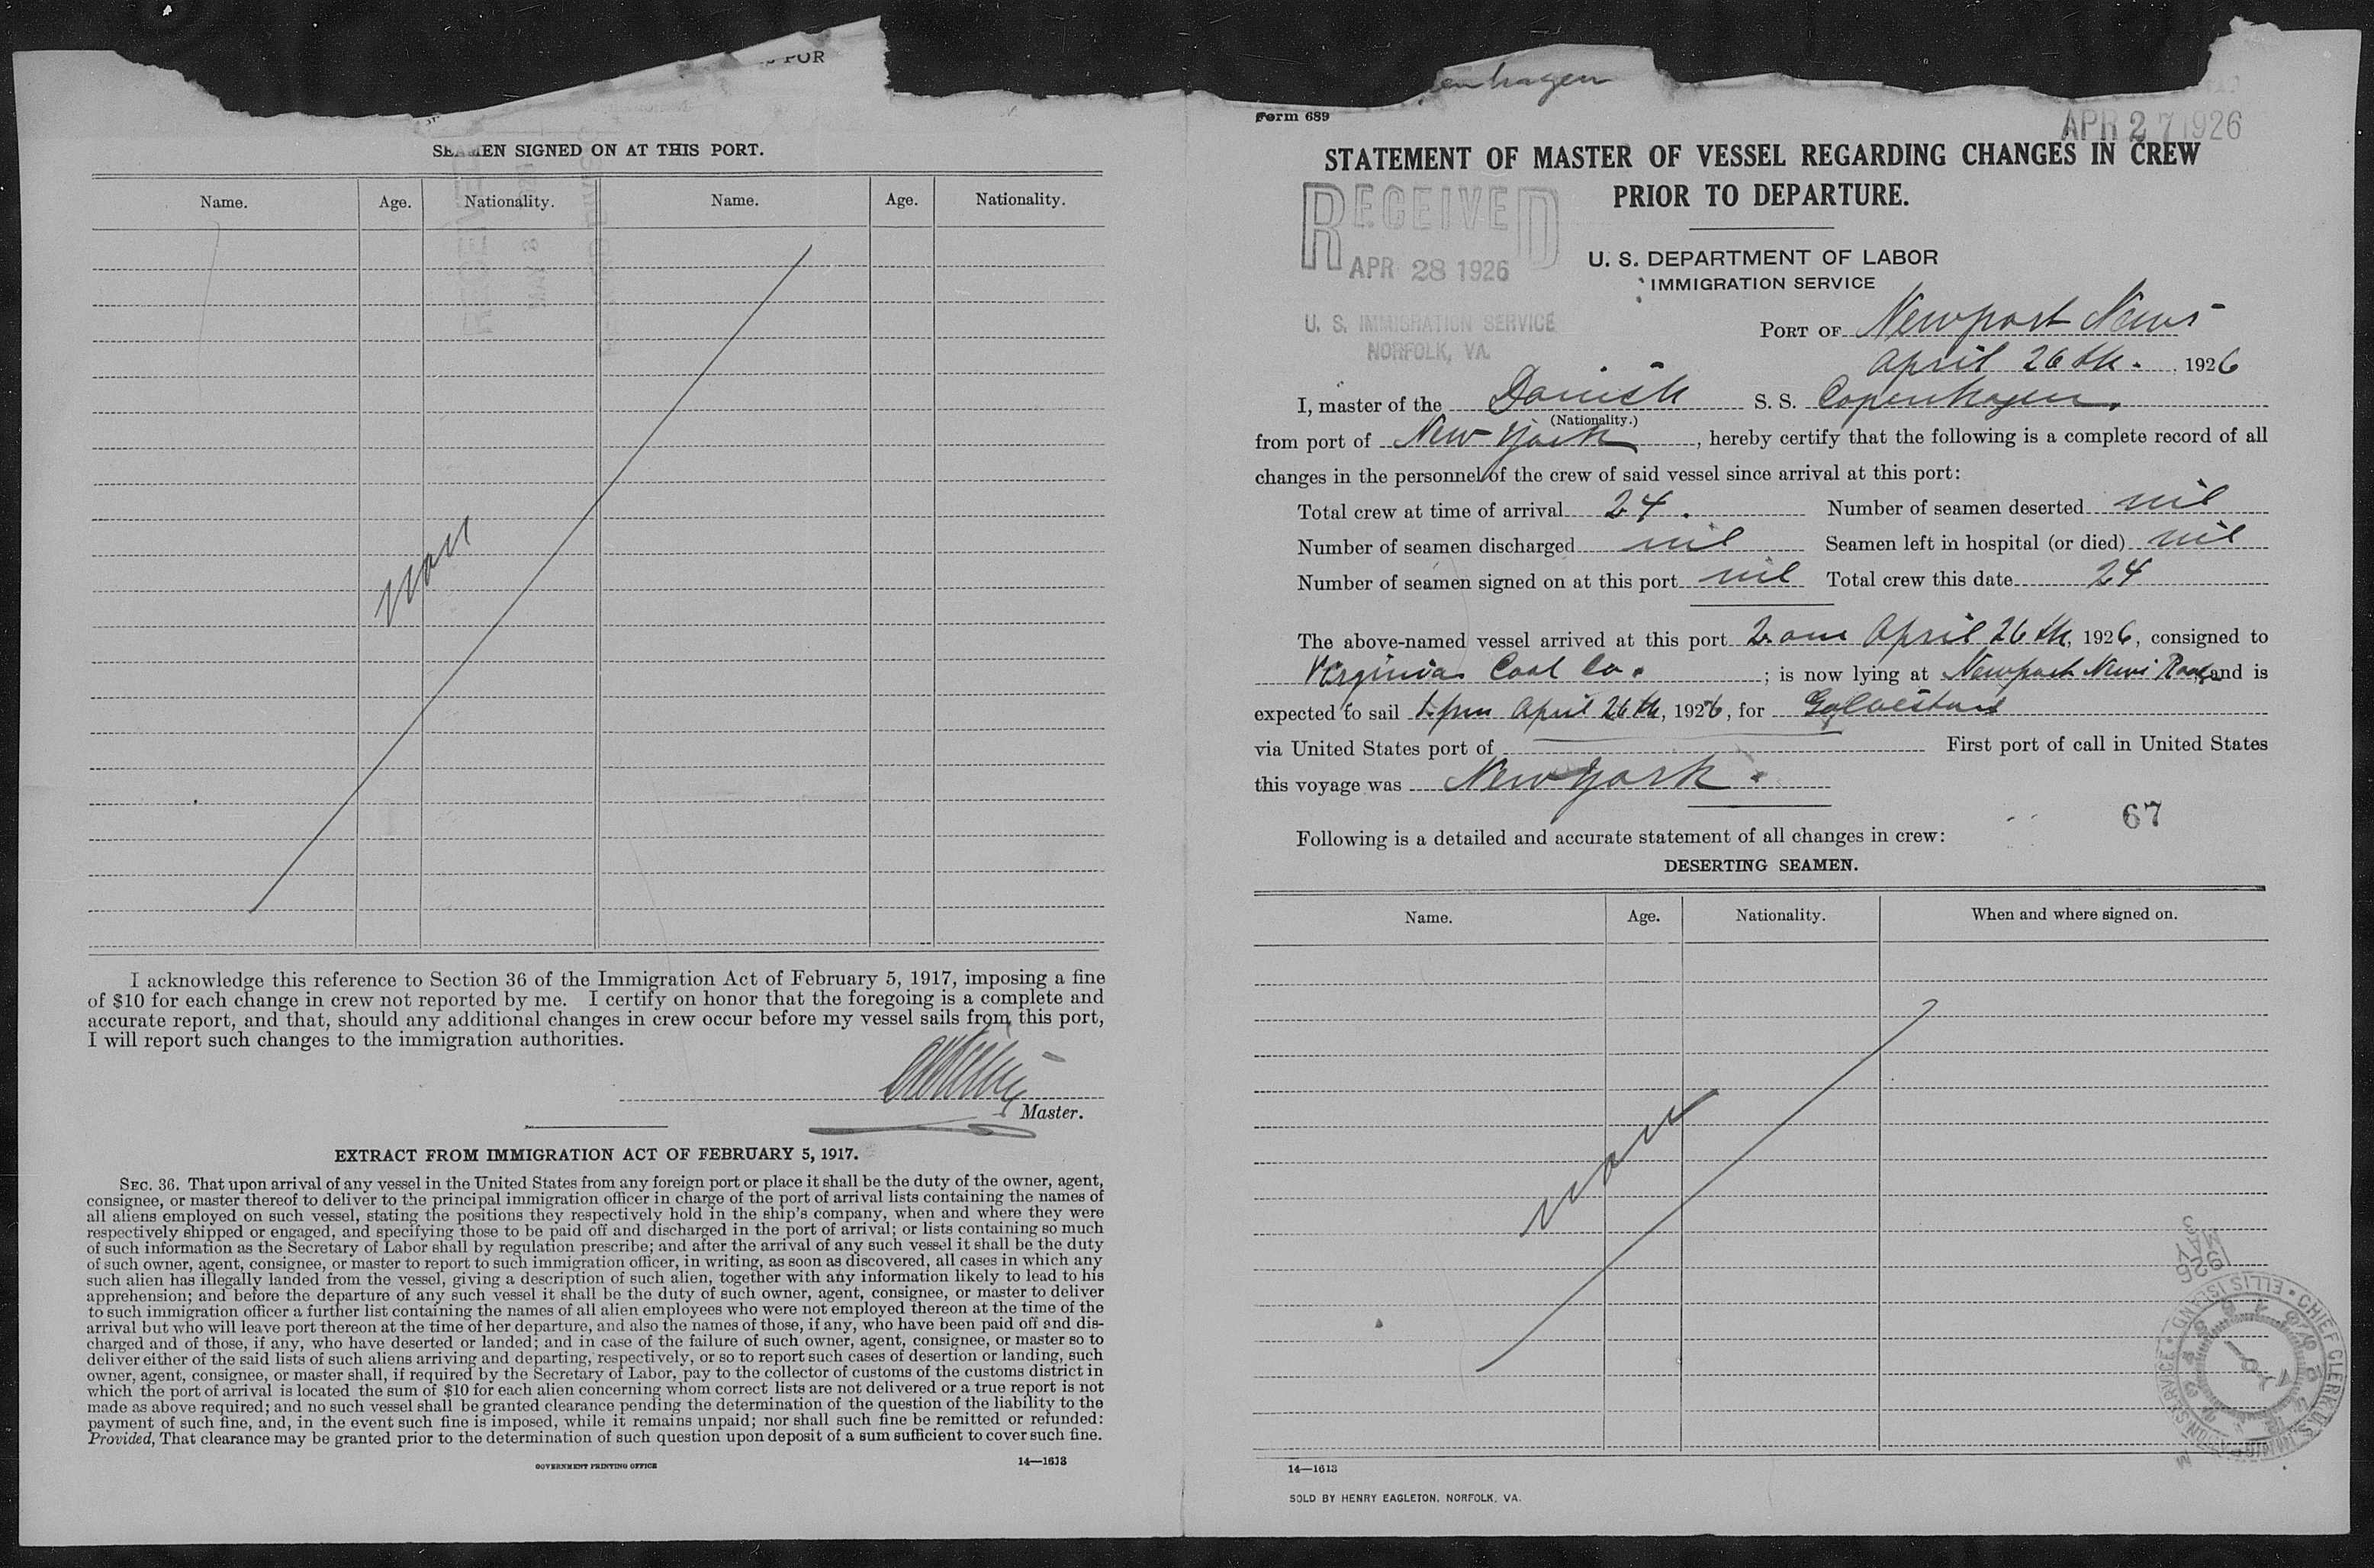 POR
SEAMEN SIGNED ON AT THIS PORT.
Name. Age. Nationality. Name. Age. Nationality.
I acknowledge this reference to Section 36 of the Immigration Act of February 5, 1917, imposing a fine
of $10 for each change in crew not reported by me. I certify on honor that the foregoing is a complete and
accurate report, and that, should any additional changes in crew occur before my vessel sails from this port,
I will report such changes to the immigration authorities.
Master.
EXTRACT FROM IMMIGRATION ACT OF FEBRUARY 5, 1917.
SEC. 36. That upon arrival of any vessel in the United States from any foreign port or place it shall be the duty of the owner, agent,
consignee, or master thereof to deliver to the principal immigration officer in charge of the port of arrival lists containing the names of
all aliens employed on such vessel, stating the positions they respectively hold in the ship's company, when and where they were
respectively shipped or engaged, and specifying those to be paid off and discharged in the port of arrival; or lists containing so much
of such information as the Secretary of Labor shall by regulation prescribe; and after the arrival of any such vessel it shall be the duty
of such owner, agent, consignee, or master to report to such immigration officer, in writing, as soon as discovered, all cases in which any
such alien has illegally landed from the vessel, giving a description of such alien, together with any information likely to lead to his
apprehension; and before the departure of any such vessel it shall be the duty of such owner, agent, consignee, or master to deliver
to such immigration officer a further list containing the names of all alien employees who were not employed thereon at the time of the
arrival but who will leave port thereon at the time of her departure, and also the names of those, if any, who have been paid off and dis-
charged and of those, if any, who have deserted or landed; and in case of the failure of such owner, agent, consignee, or master so to
deliver either of the said lists of such aliens arriving and departing, respectively, or so to report such cases of desertion or landing, such
owner, agent, consignee, or master shall, if required by the Secretary of Labor, pay to the collector of customs of the customs district in
which the port of arrival is located the sum of $10 for each alien concerning whom correct lists are not delivered or a true report is not
made as above required; and no such vessel shall be granted clearance pending the determination of the question of the liability to the
payment of such fine, and, in the event such fine is imposed, while it remains unpaid; nor shall such fine be remitted or refunded:
Provided, That clearance may be granted prior to the determination of such question upon deposit of a sum sufficient to cover such fine.
GOVERNMENT PRINTING OFFICE 14—1613
enhagen
Form 689
APR 27 1926
STATEMENT OF MASTER OF VESSEL REGARDING CHANGES IN CREW
PRIOR TO DEPARTURE.
RECEIVED
APR 28 1926
U. S. IMMIGRATION SERVICE
NORFOLK, VA.
U. S. DEPARTMENT OF LABOR
IMMIGRATION SERVICE
PORT OF Newport News
April 26th. 1926
I, master of the Danish S. S. Copenhagen.
(Nationality.)
from port of New York, hereby certify that the following is a complete record of all
changes in the personnel of the crew of said vessel since arrival at this port:
Total crew at time of arrival 24. Number of seamen deserted nil
Number of seamen discharged nil Seamen left in hospital (or died) nil
Number of seamen signed on at this port nil Total crew this date 24
The above-named vessel arrived at this port 2 am April 26th, 1926, consigned to
Virginia Coal Co. ; is now lying at Newport News Road, and is
expected to sail 1 pm April 26th, 1926, for Galveston
via United States port of First port of call in United States
this voyage was New York.
67
Following is a detailed and accurate statement of all changes in crew:
DESERTING SEAMEN.
Name. Age. Nationality. When and where signed on.
1926
MAY
3
ELLIS ISLAND • CHIEF CLERK U.S. IMMIGRATION SERVICE
14—1613
SOLD BY HENRY EAGLETON, NORFOLK, VA.